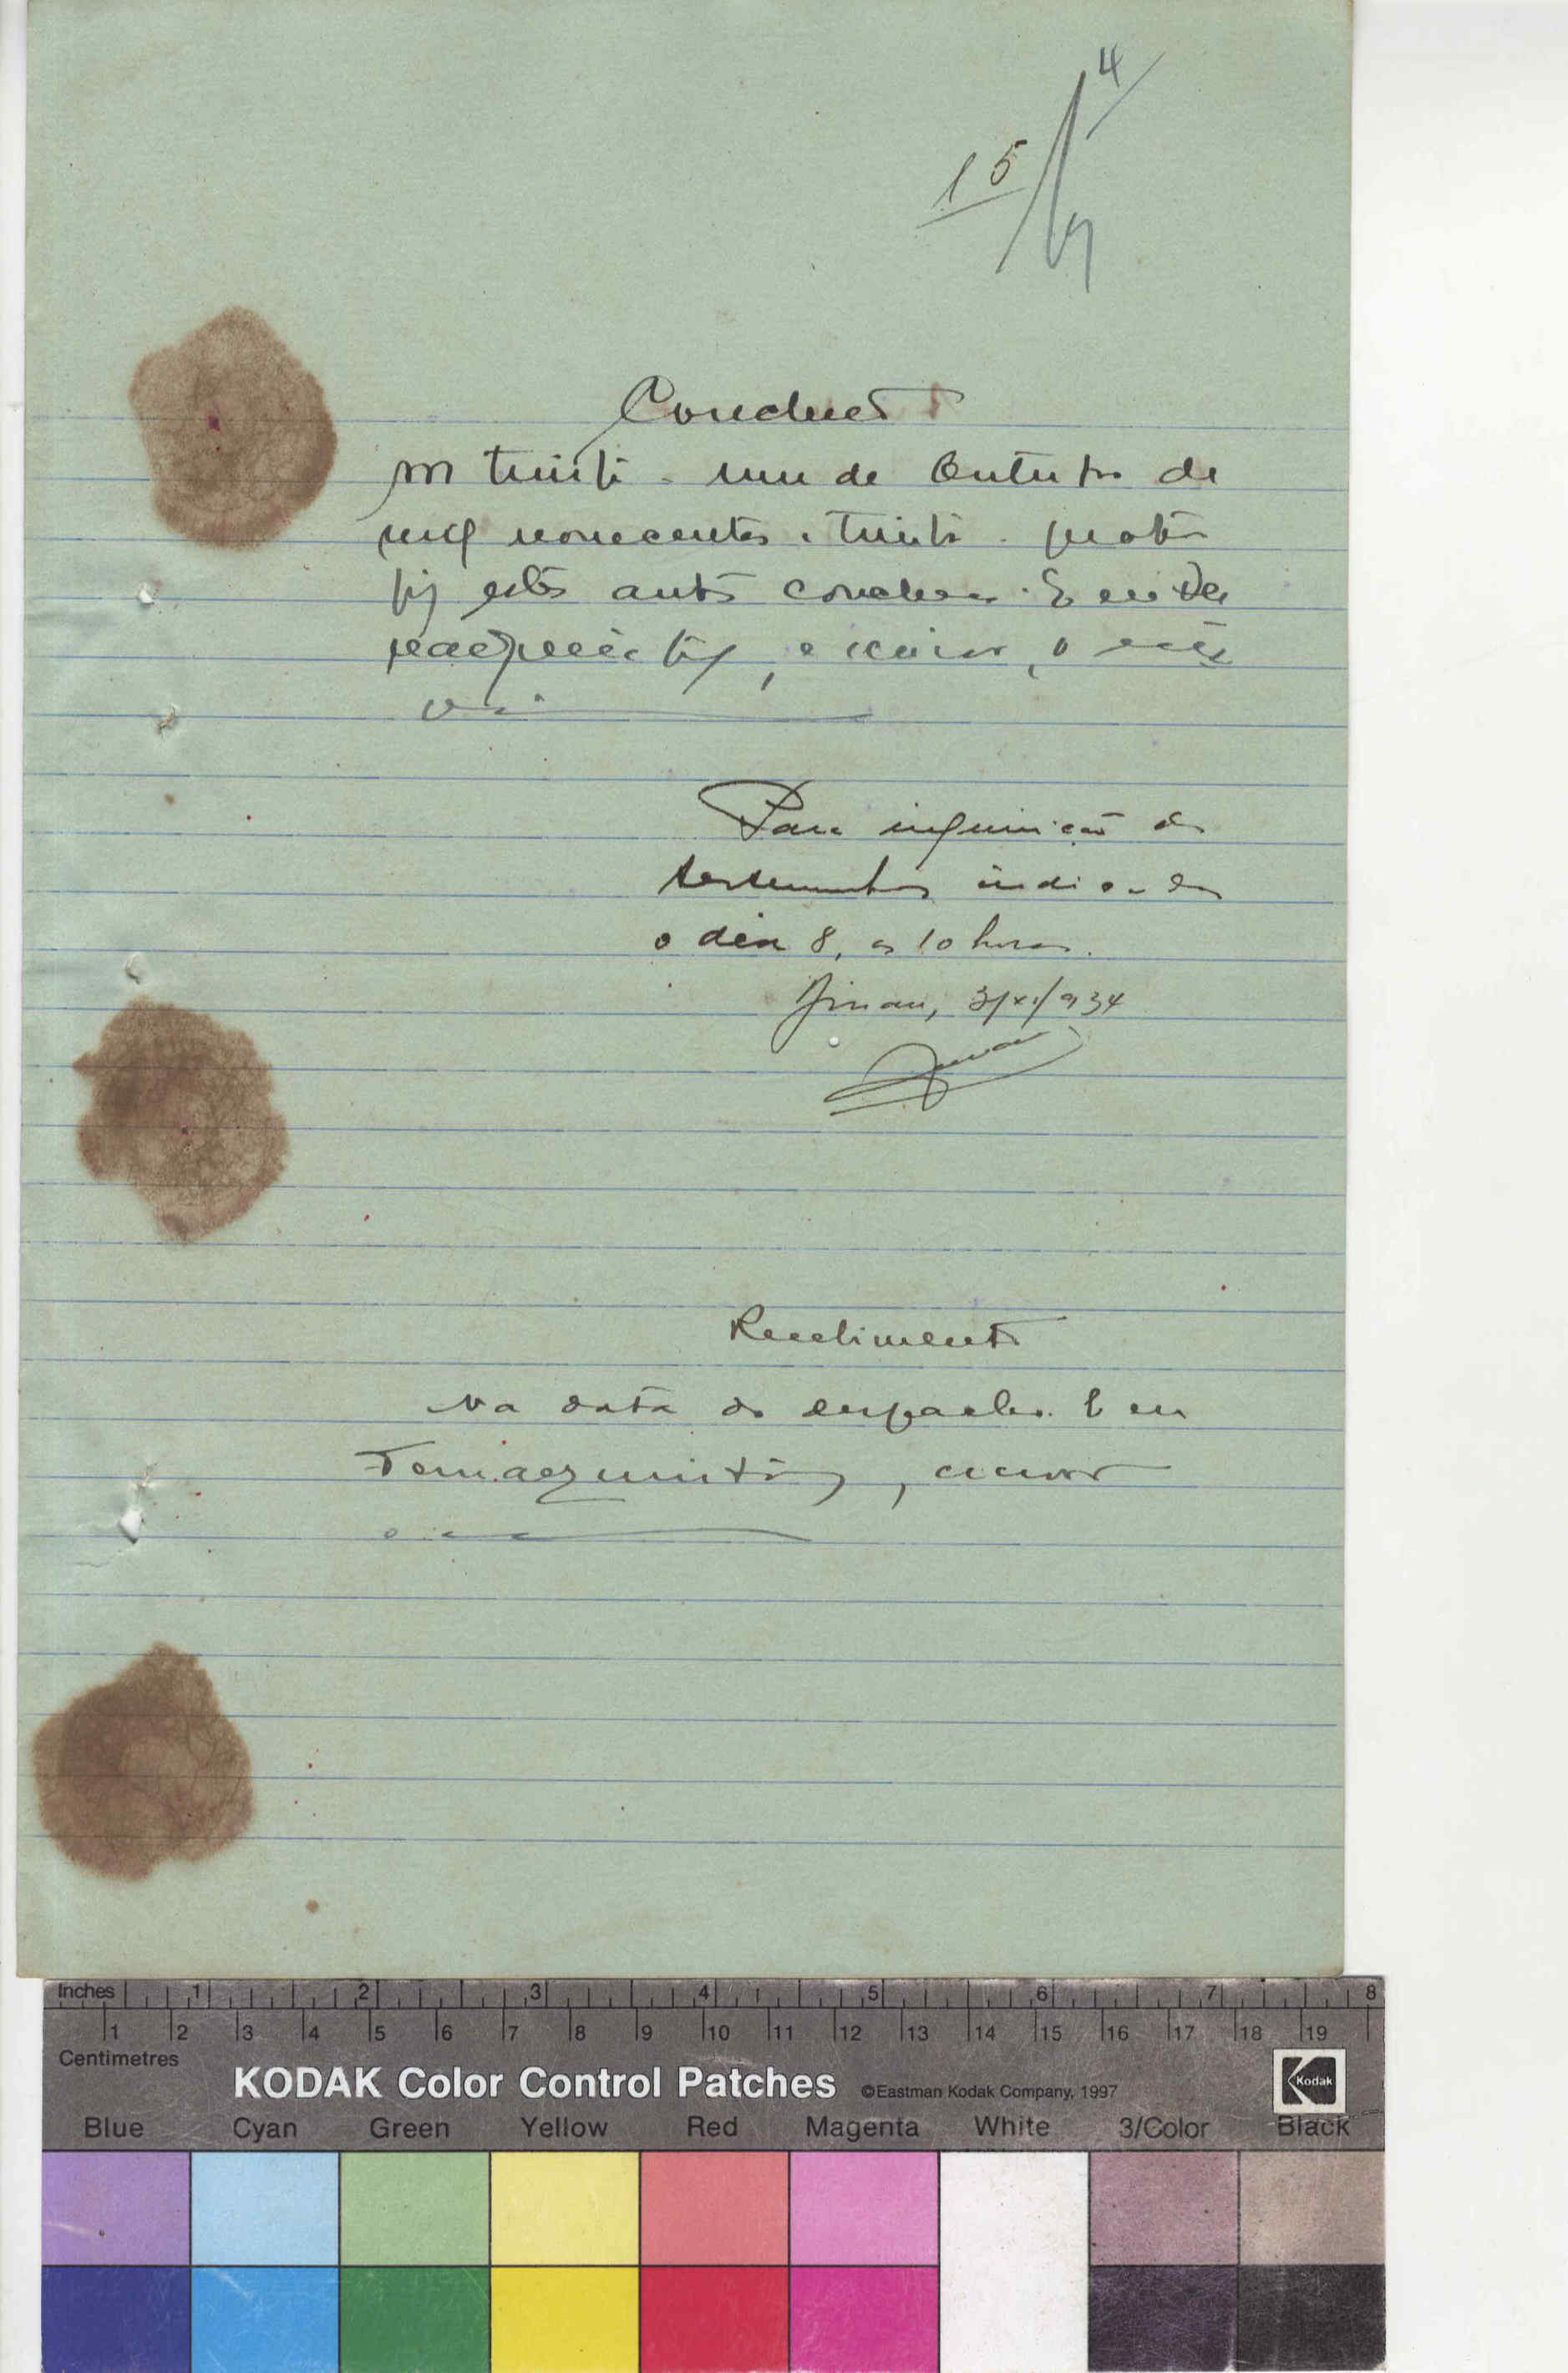 4
15
Concluso
Em trinta e um de Outubro de
mil novecentos e trinta e quatro
fiz estes autos conclusos. E eu
escrivão, o escre
vi
Para inquirição das
testemunhas indicadas
o dia 8, as 10 horas.
3/XI/934
Recebimento
Na data do despacho. E eu
, escrivão
o escrevi
Inches 1 2 3 4 5 6 7 8
1 2 3 4 5 6 7 8 9 10 11 12 13 14 15 16 17 18 19
Centimetres
KODAK Color Control Patches ©Eastman Kodak Company, 1997 Kodak
Blue Cyan Green Yellow Red Magenta White 3/Color Black